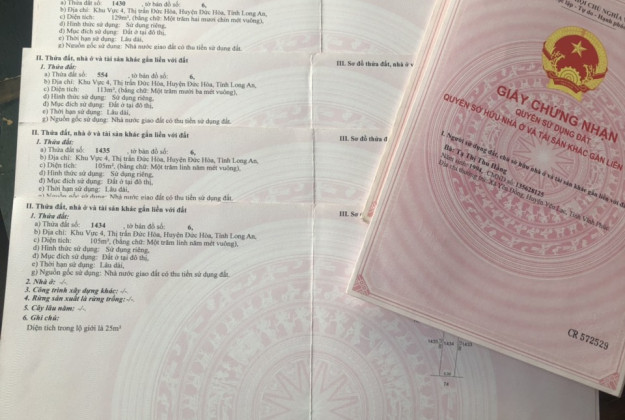 a) Thửa đất số: 1430 , tờ bản đồ số: 6,
b) Địa chỉ: Khu Vực 4, Thị trấn Đức Hòa, Huyện Đức Hòa, Tỉnh Long An,
c) Diện tích: 129m², (bằng chữ: Một trăm hai mươi chín mét vuông),
d) Hình thức sử dụng: Sử dụng riêng,
đ) Mục đích sử dụng: Đất ở tại đô thị,
e) Thời hạn sử dụng: Lâu dài,
g) Nguồn gốc sử dụng: Nhà nước giao đất có thu tiền sử dụng đất.
II. Thửa đất, nhà ở và tài sản khác gắn liền với đất
1. Thửa đất:
a) Thửa đất số: 554 , tờ bản đồ số: 6,
b) Địa chỉ: Khu Vực 4, Thị trấn Đức Hòa, Huyện Đức Hòa, Tỉnh Long An,
c) Diện tích: 113m², (bằng chữ: Một trăm mười ba mét vuông),
d) Hình thức sử dụng: Sử dụng riêng,
đ) Mục đích sử dụng: Đất ở tại đô thị,
e) Thời hạn sử dụng: Lâu dài,
g) Nguồn gốc sử dụng: Nhà nước giao đất có thu tiền sử dụng đất.
III. Sơ đồ thửa đất, nhà ở v
II. Thửa đất, nhà ở và tài sản khác gắn liền với đất
1. Thửa đất:
a) Thửa đất số: 1435 , tờ bản đồ số: 6,
b) Địa chỉ: Khu Vực 4, Thị trấn Đức Hòa, Huyện Đức Hòa, Tỉnh Long An,
c) Diện tích: 105m², (bằng chữ: Một trăm linh năm mét vuông),
d) Hình thức sử dụng: Sử dụng riêng,
đ) Mục đích sử dụng: Đất ở tại đô thị,
e) Thời hạn sử dụng: Lâu dài,
g) Nguồn gốc sử dụng: Nhà nước giao đất có thu tiền sử dụng đất.
III. Sơ đồ thửa đ
II. Thửa đất, nhà ở và tài sản khác gắn liền với đất
1. Thửa đất:
a) Thửa đất số: 1434 , tờ bản đồ số: 6,
b) Địa chỉ: Khu Vực 4, Thị trấn Đức Hòa, Huyện Đức Hòa, Tỉnh Long An,
c) Diện tích: 105m², (bằng chữ: Một trăm linh năm mét vuông),
d) Hình thức sử dụng: Sử dụng riêng,
đ) Mục đích sử dụng: Đất ở tại đô thị,
e) Thời hạn sử dụng: Lâu dài,
g) Nguồn gốc sử dụng: Nhà nước giao đất có thu tiền sử dụng đất.
2. Nhà ở: -/-.
3. Công trình xây dựng khác: -/-.
4. Rừng sản xuất là rừng trồng: -/-.
5. Cây lâu năm: -/-.
6. Ghi chú:
Diện tích trong lộ giới là 25m²
III. Sơ
HỘI CHỦ NGHĨA
lập - Tự do - Hạnh phúc
GIẤY CHỨNG NHẬN
QUYỀN SỬ DỤNG ĐẤT
QUYỀN SỞ HỮU NHÀ Ở VÀ TÀI SẢN KHÁC GẮN LIỀN
I. Người sử dụng đất, chủ sở hữu nhà ở và tài sản khác gắn liền với đ
Bà: Tạ Thị Thu Hằng
CR 572529